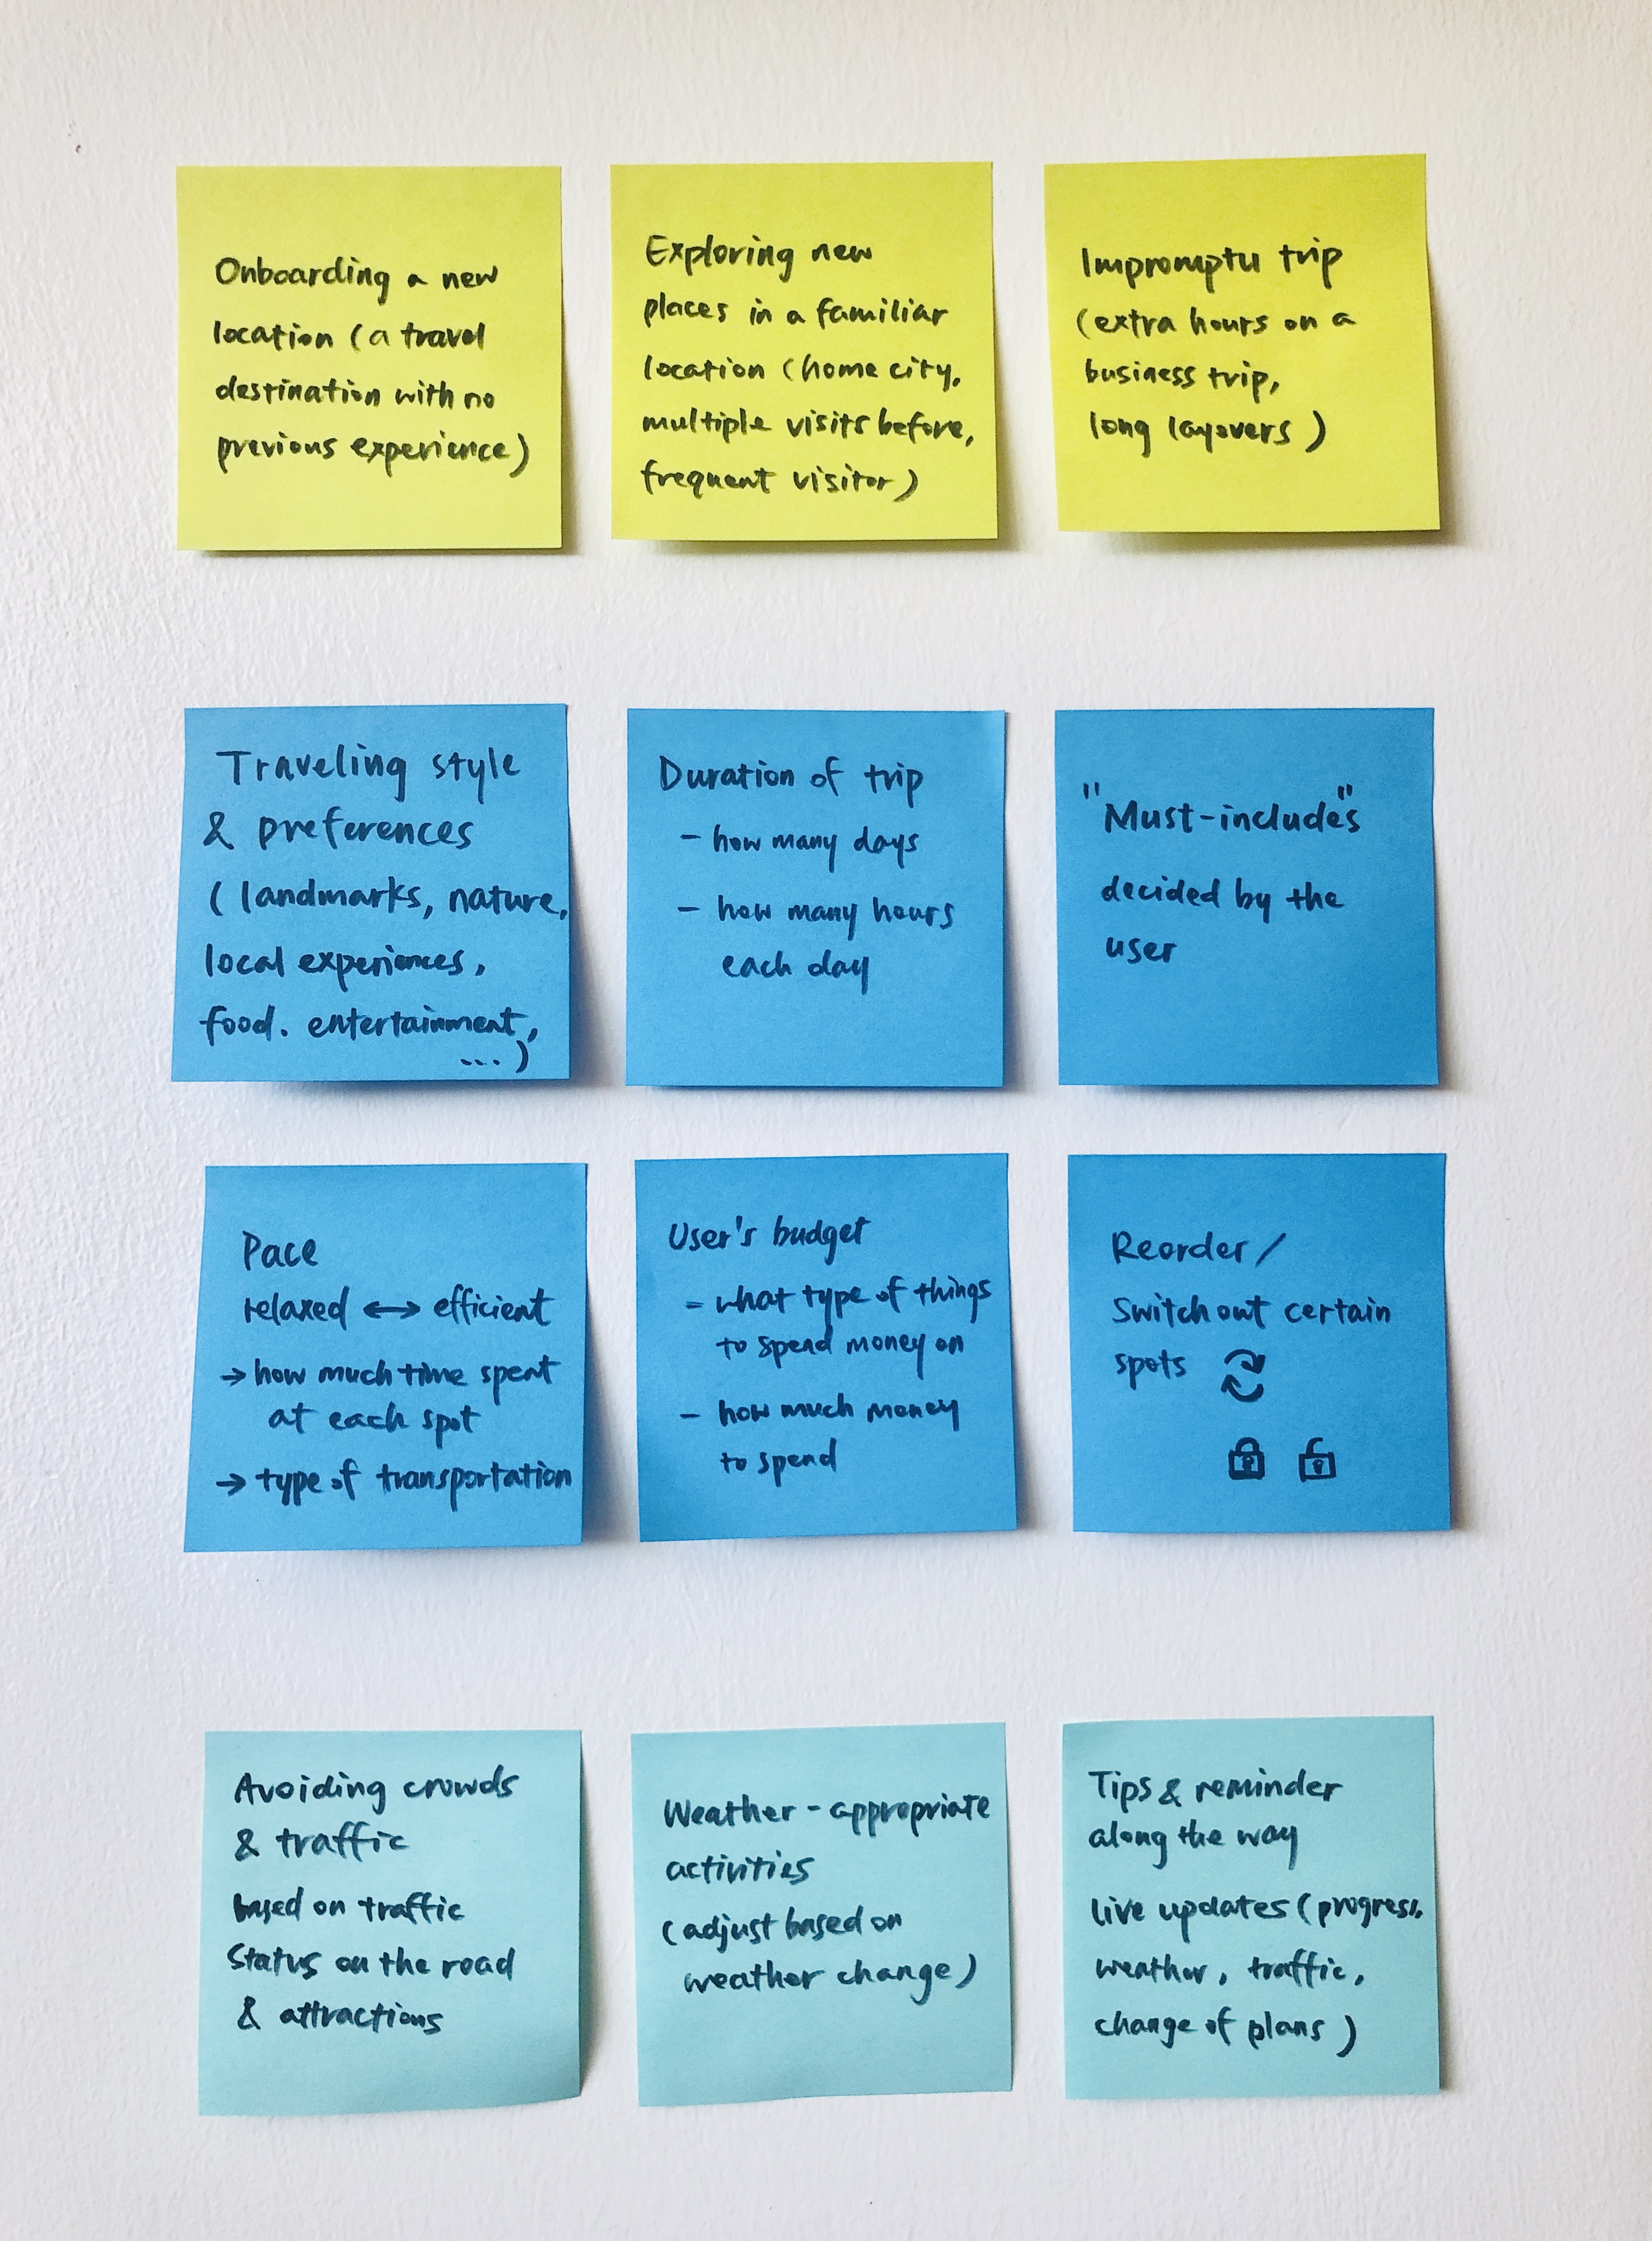 Onboarding a new
location (a travel
destination with no
previous experience)
Exploring new
places in a familiar
location (home city,
multiple visits before,
frequent visitor)
Impromptu trip
(extra hours on a
business trip,
long layovers)
Traveling style
& preferences
(landmarks, nature,
local experiences,
food. entertainment,
...)
Duration of trip
- how many days
- how many hours
each day
"Must-include"s
decided by the
user
Pace
relaxed ↔ efficient
→ how much time spent
at each spot
→ type of transportation
User's budget
- what type of things
to spend money on
- how much money
to spend
Reorder /
Switch out certain
spots
Avoiding crowds
& traffic
based on traffic
status on the road
& attractions
Weather-appropriate
activities
(adjust based on
weather change)
Tips & reminder
along the way
live updates (progress,
weather, traffic,
change of plans)